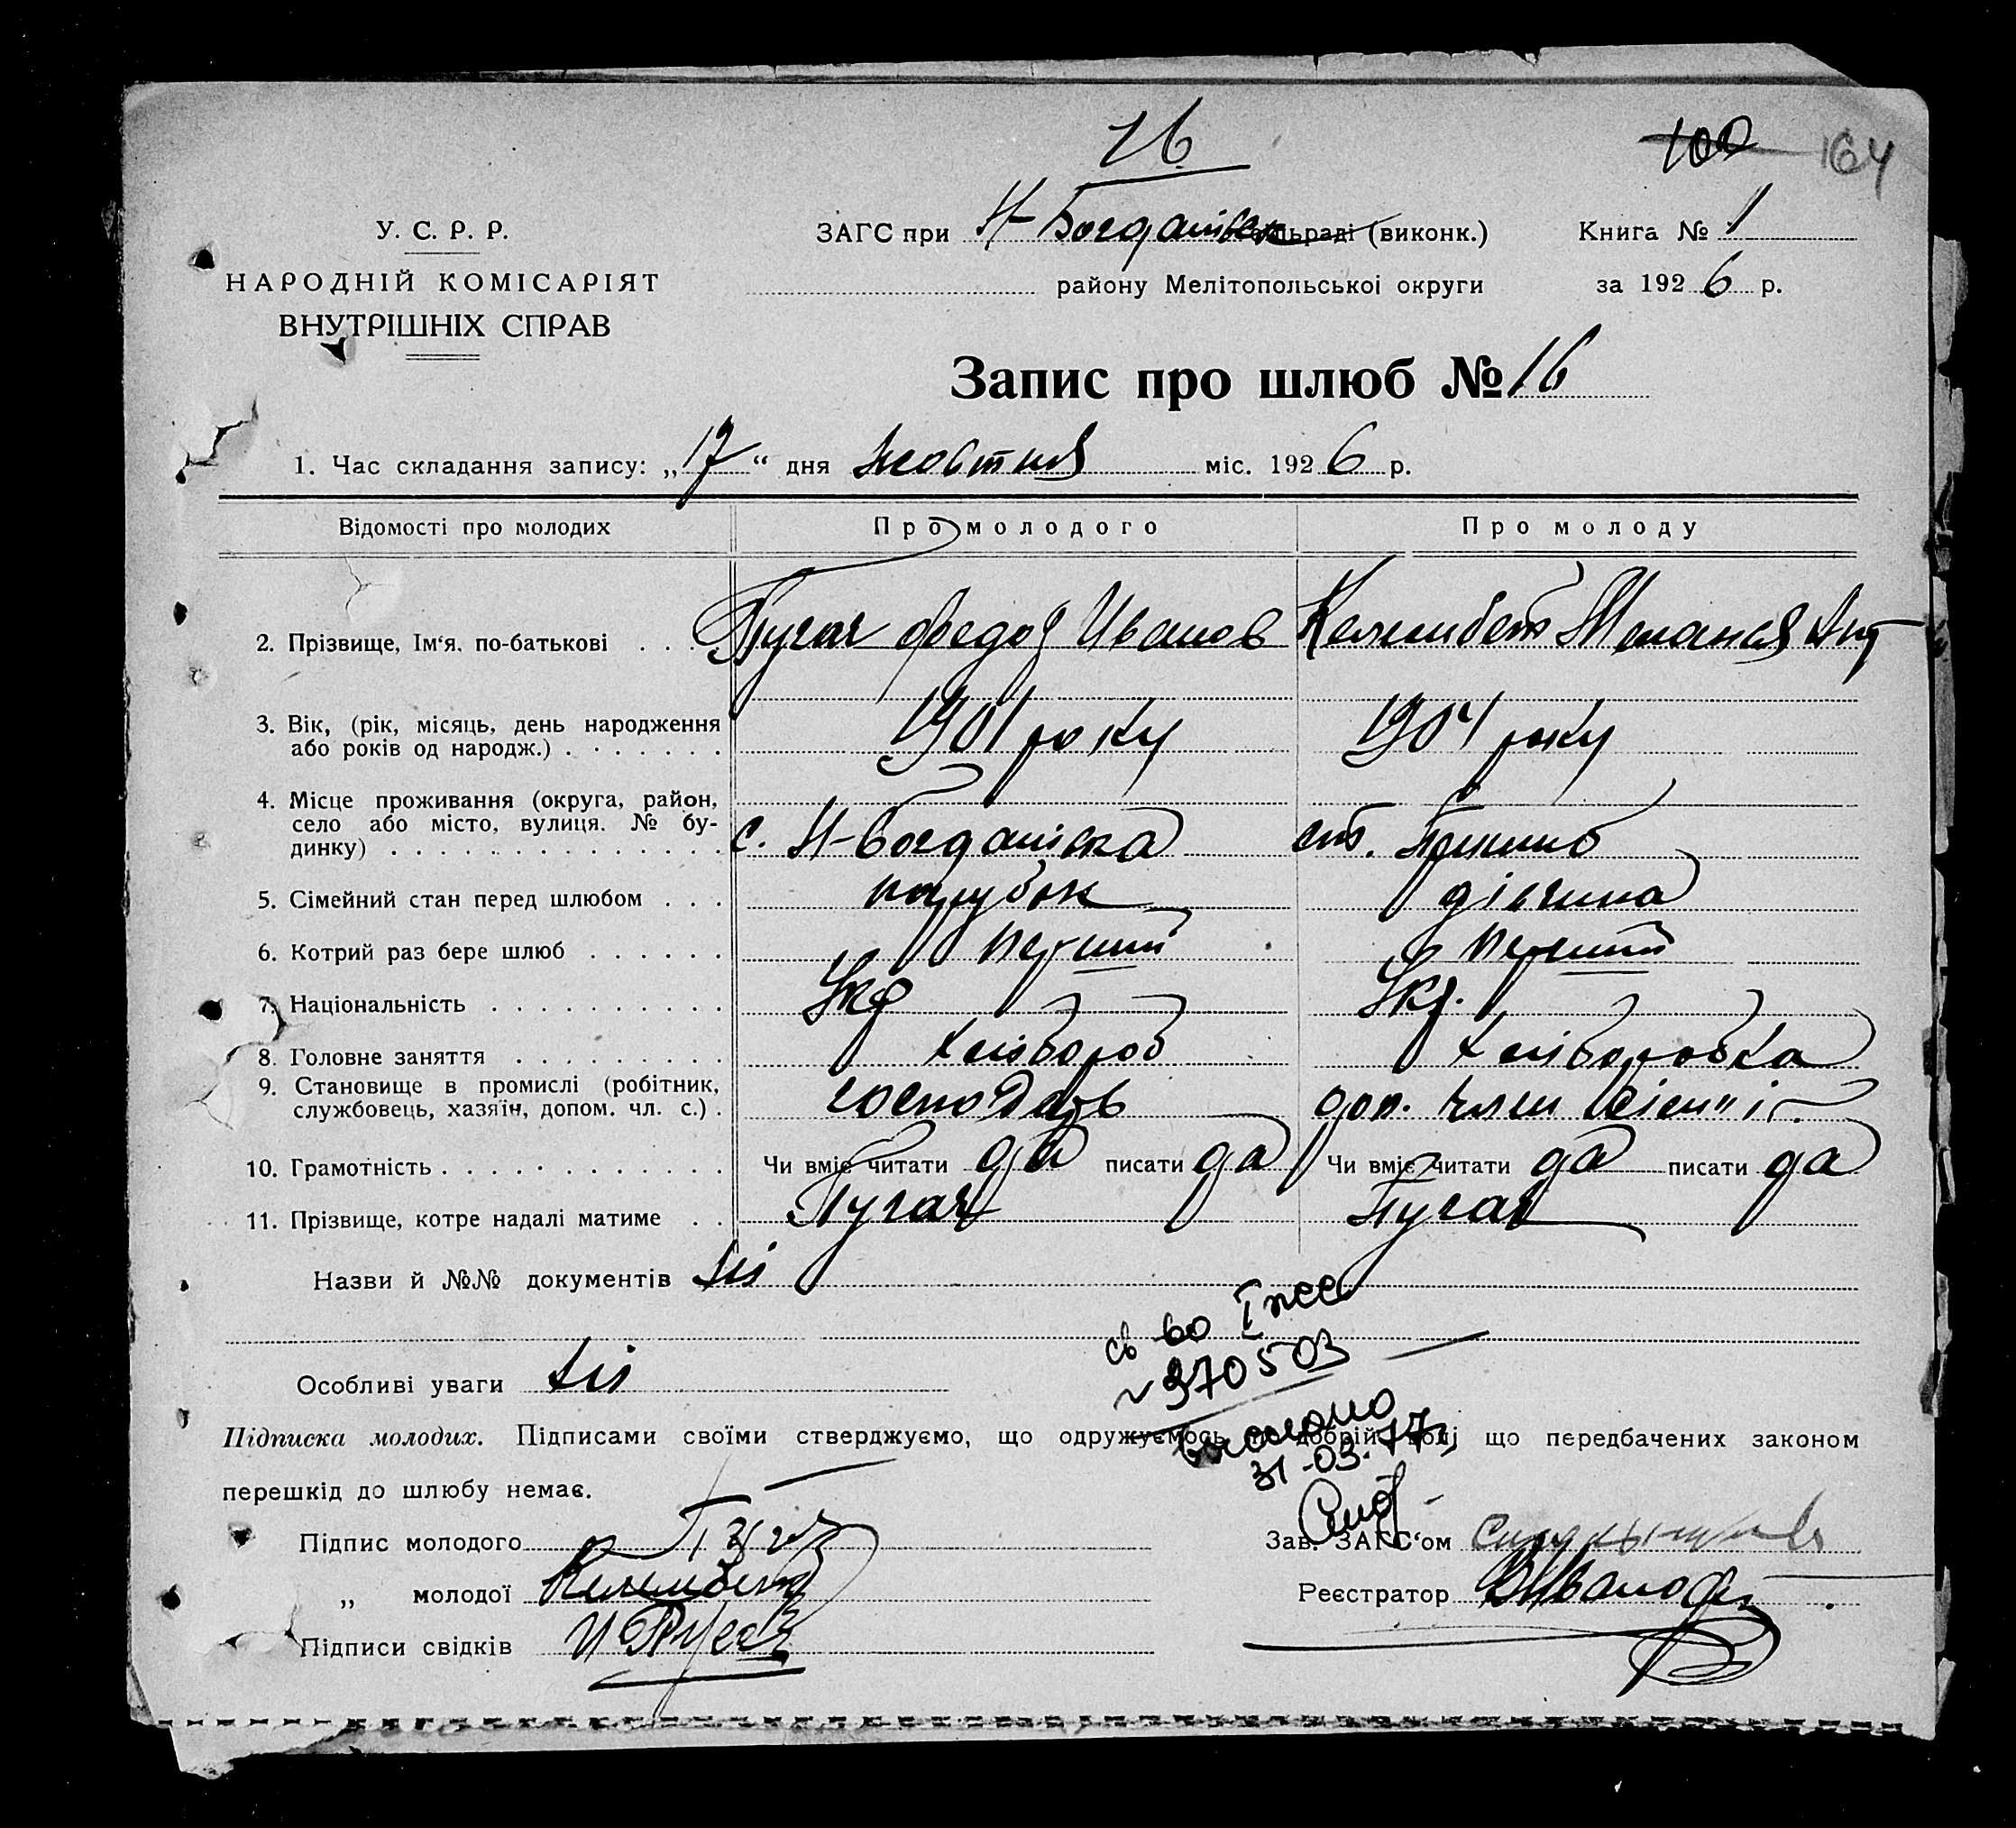 16
100 164
У. С. Р. Р.
ЗАГС при Н-Богданівск сільраді (виконк.)
Книга № 1
НАРОДНІЙ КОМІСАРІЯТ
ВНУТРІШНІХ СПРАВ
району Мелітопольської округи
за 1926 р.
Запис про шлюб № 16
1. Час складання запису: „17“ дня жовтня міс. 1926 р.
Відомості про молодих Про молодого Про молоду
2. Прізвище, Ім'я, по-батькові . . . Пугач Федор Иванов Келембет Меланія Ант
3. Вік, (рік, місяць, день народження
або років од народж.) . . . . . . . 1901 року 1904 року
4. Місце проживання (округа, район,
село або місто, вулиця. № бу-
динку) . . . . . . . . . . . . . . . с. Н-Богданівка ст. Пришиб
5. Сімейний стан перед шлюбом . . . парубок дівчина
6. Котрий раз бере шлюб . . . . . . перший перший
7. Національність . . . . . . . . . . Укр Укр.
8. Головне заняття . . . . . . . . . хлібороб хліборобка
9. Становище в промислі (робітник,
службовець, хазяїн, допом. чл. с.) . господарь доп. член сієм'і
10. Грамотність . . . . . . . . . . . . Чи вміє читати да писати да Чи вміє читати да писати да
11. Прізвище, котре надалі матиме . . Пугач Пугач
Назви й №№ документів
св во І жсс
№ 370503
Особливі уваги
Підписка молодих. Підписами своїми стверджуємо, що одружуємось по добрій волі що передбачених законом
31-03-77
перешкід до шлюбу немає.
Підпис молодого
Зав. ЗАГС'ом
„ молодої Келембет
Реєстратор
Підписи свідків И Пугач